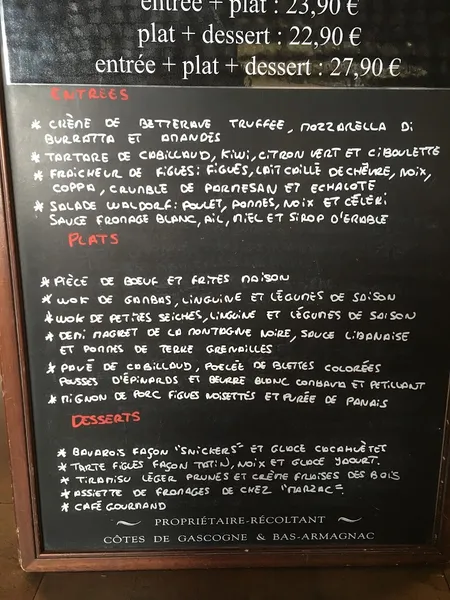 entrée + plat : 23,90 €
plat + dessert : 22,90 €
entrée + plat + dessert : 27,90 €
ENTREES
* CRÈME DE BETTERAVE TRUFFEE, MOZZARELLA DI
BURRATTA ET AMANDES
* TARTARE DE CABILLAUD, KIWI, CITRON VERT ET CIBOULETTE
* FRAICHEUR DE FIGUES: FIGUES, LAIT CAILLÉ DE CHÈVRE, NOIX,
COPPA, CRUMBLE DE PARMESAN ET ECHALOTE
* SALADE WALDORF: POULET, POMMES, NOIX ET CÉLERI
SAUCE FROMAGE BLANC, AIL, MIEL ET SIROP D'ERABLE
PLATS
* PIÈCE DE BOEUF ET FRITES MAISON
* WOK DE GAMBAS, LINGUINE ET LÉGUMES DE SAISON
* WOK DE PETITES SEICHES, LINGUINE ET LÉGUMES DE SAISON
* DEMI MAGRET DE LA MONTAGNE NOIRE, SAUCE LIBANAISE
ET POMMES DE TERRE GRENAILLES
* PAVÉ DE CABILLAUD, POELÉE DE BLETTES COLORÉES
POUSSES D'ÉPINARDS ET BEURRE BLANC COMBAVA ET PETILLANT
* MIGNON DE PORC FIGUES NOISETTES ET PURÉE DE PANAIS
DESSERTS
* BAVAROIS FAÇON "SNICKERS" ET GLACE CACAHUÈTES
* TARTE FIGUES FAÇON TATIN, NOIX ET GLACE YAOURT.
* TIRAMISU LÉGER PRUNES ET CRÈME FRAISES DES BOIS
* ASSIETTE DE FROMAGES DE CHEZ "MARZAC"
* CAFÉ GOURMAND
PROPRIÉTAIRE-RÉCOLTANT
CÔTES DE GASCOGNE & BAS-ARMAGNAC